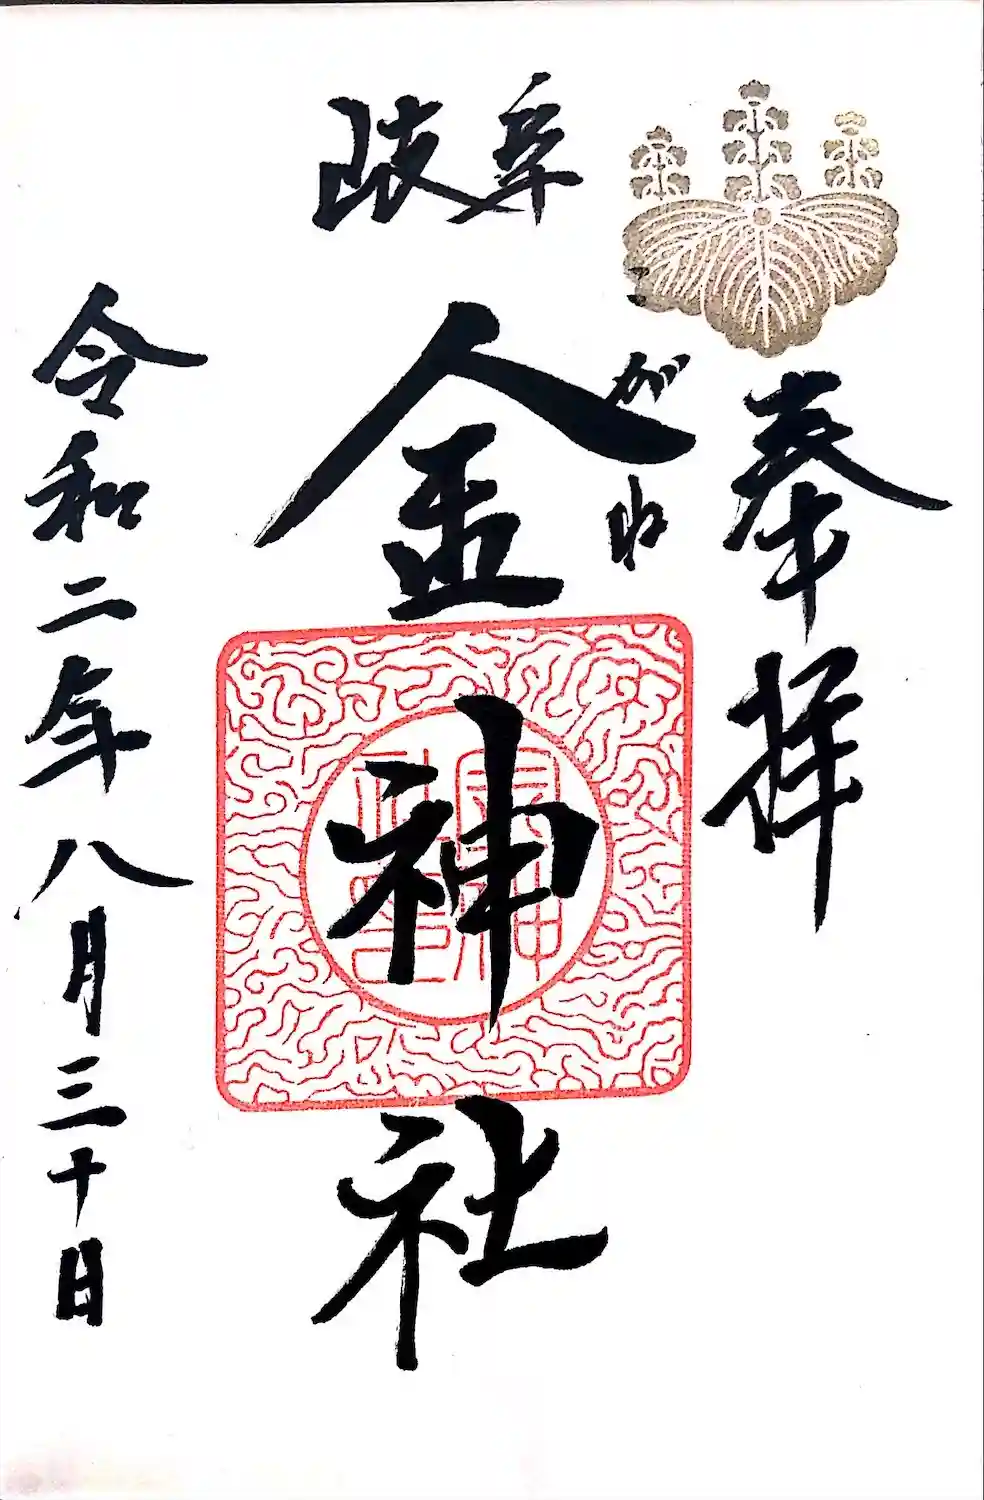 奉拝
岐阜
こがね
金神社
令和二年八月三十日